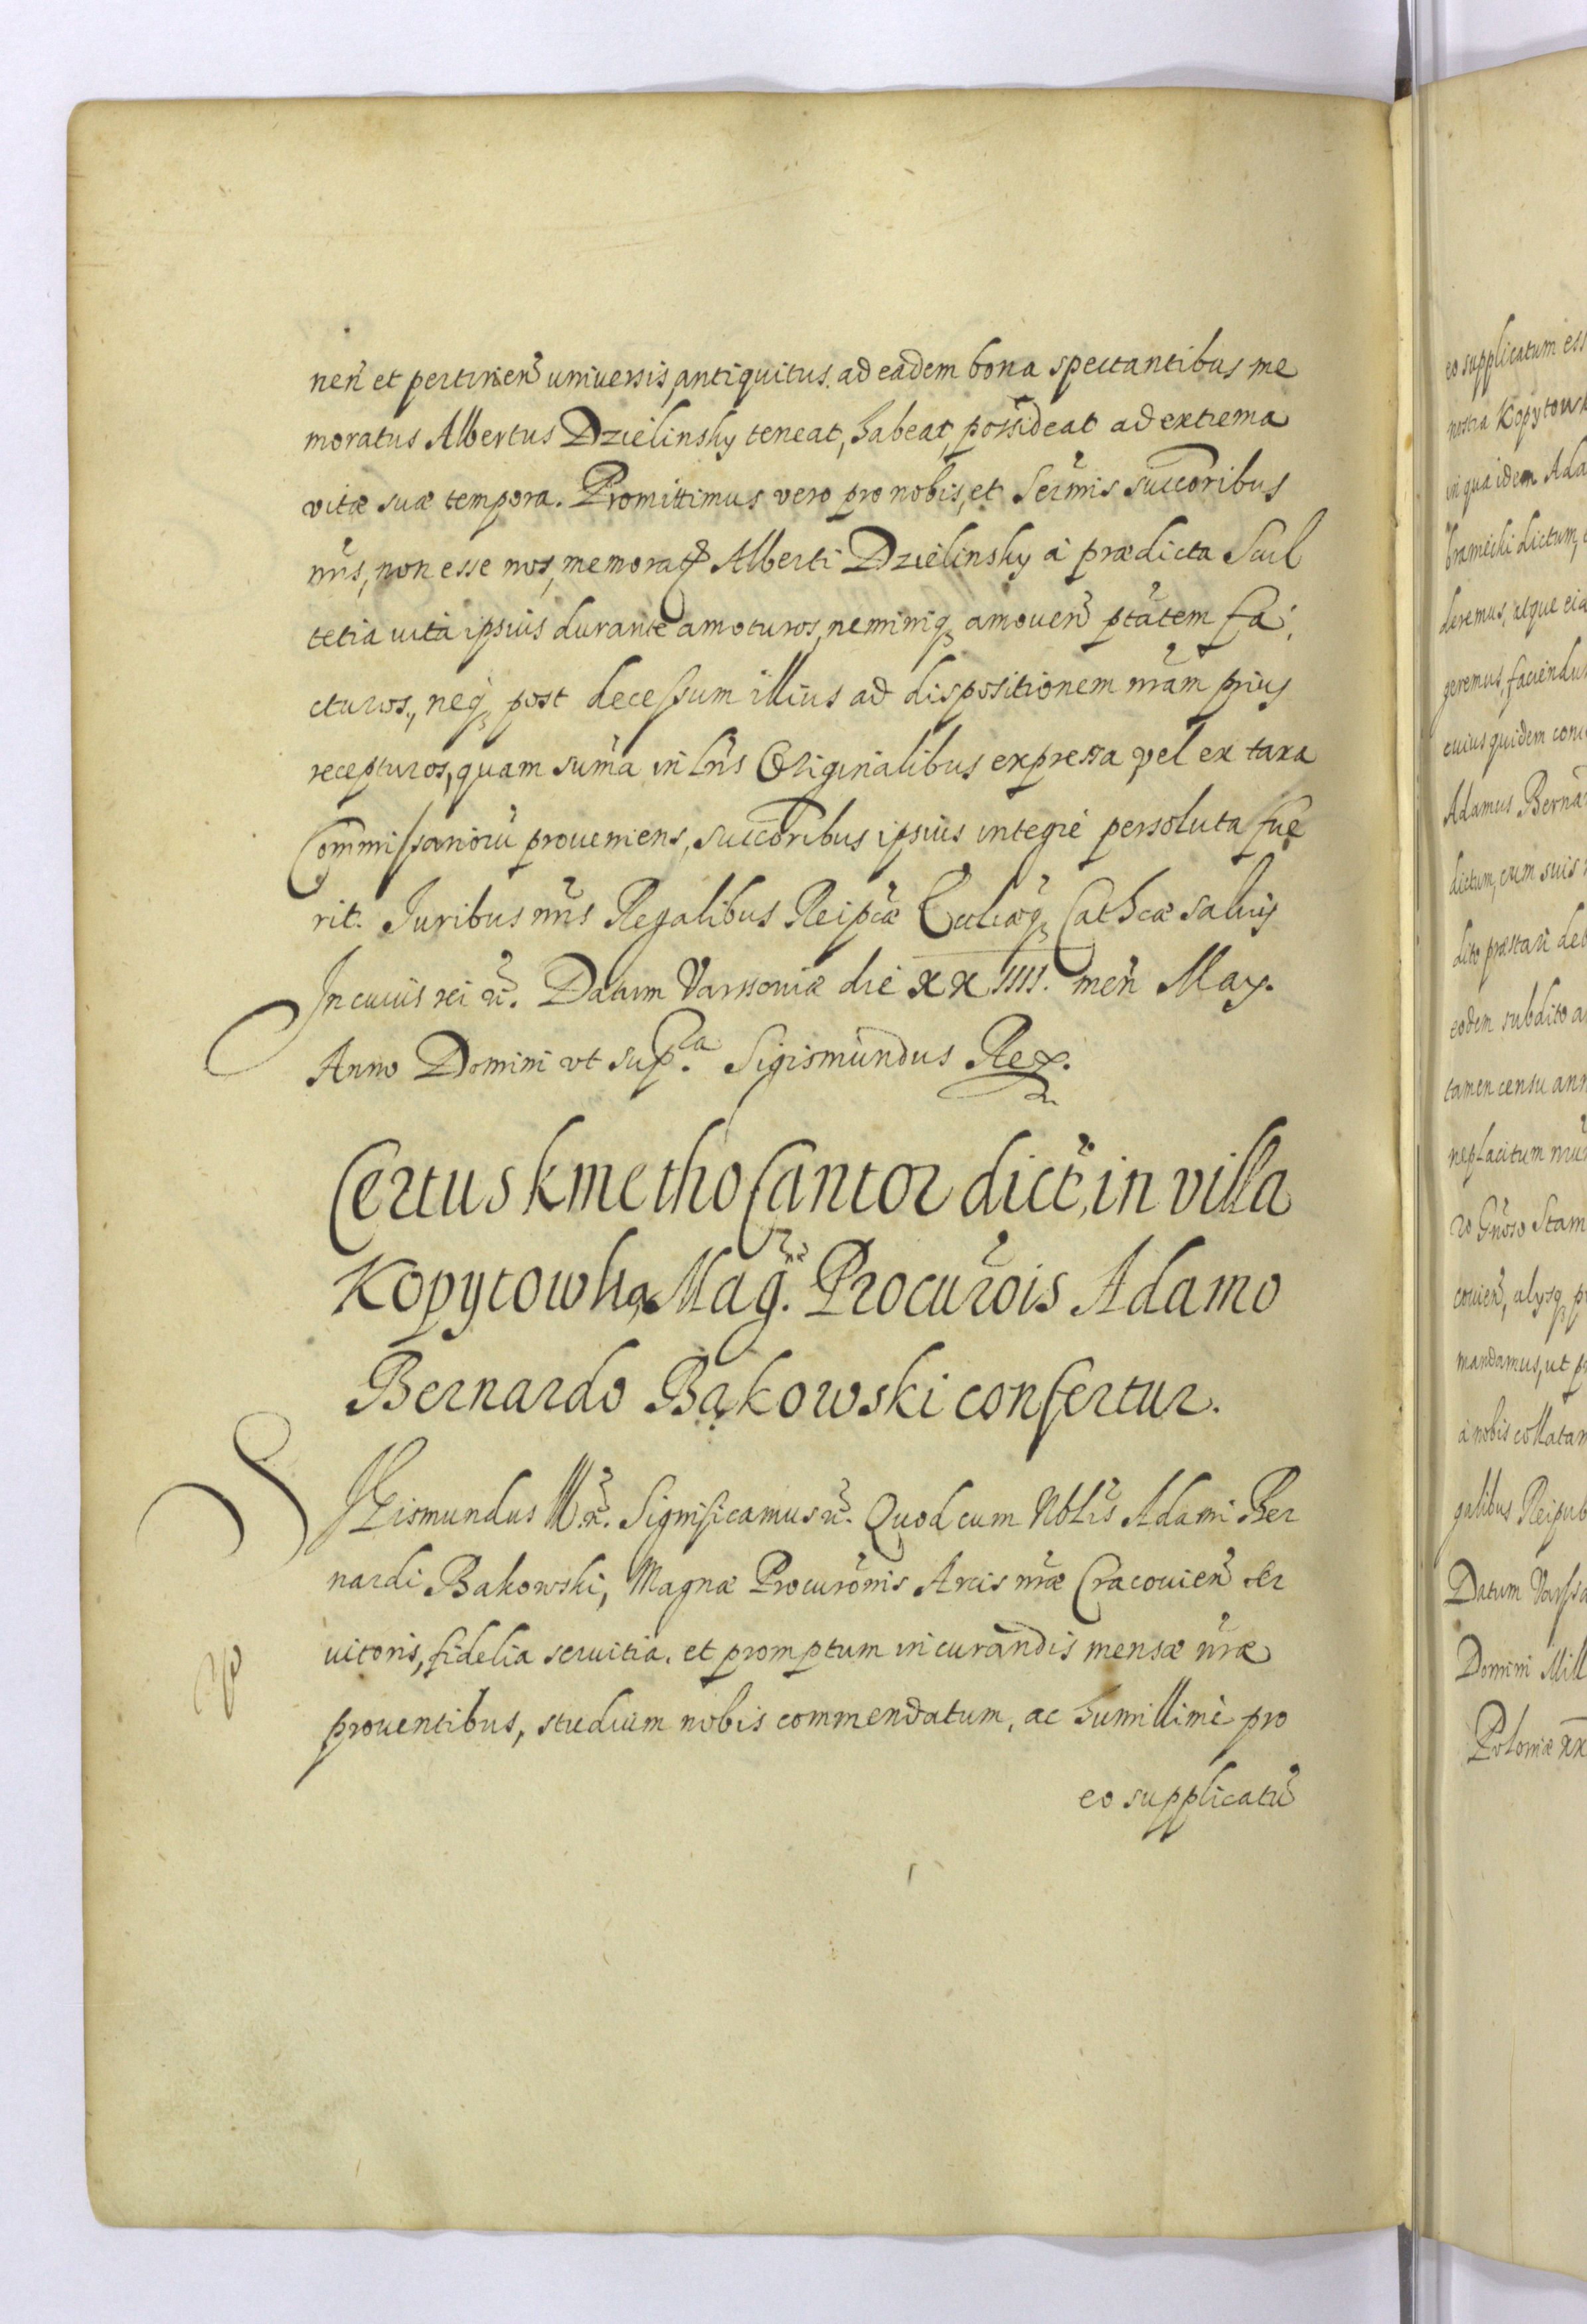 neñ et pertineñ universis, antiquitus ad eadem bona spectantibus me
moratus Albertus Dzielinsky teneat, habeat, possideat ad extrema
vitæ suæ tempora. Promittimus vero pro nobis, et Sermis succoribus
nris, non esse nos, memorat Alberti Dzielinsky à prædicta Scul
tetia vita ipsius durante amoturos, neminiq amouen ptatem fa
cturos, neq post decessum illius ad dispositionem nram prius
recepturos, quam suma in lris Originalibus expressa vel ex taxa
Commissarioru proueniens, succoribus ipsius integrè persoluta fue
rit. Juribus nris Regalibus Reipcæ Ecclæq Cathcæ saluis
In cuius rei &. Datum Varssouiæ die XXIIII. men May.
Anno Domini vt supra. Sigismundus Rex.
Certus kmetho Cantor dict, in villa
Kopytowka Mag. Procurois Adamo
Bernardo Bąkowski confertur.
SIGismundus III. &. Significamus &. Quod cum Nblis Adami Ber
nardi Bakowski, Magnæ Procuronis Arcis nræ Cracouien ser
uitoris, fidelia seruitia, et promptum in curandis mensæ nræ
prouentibus, studium nobis commendatum, ac humillimè pro
eo supplicatu
eo supplicatum ess
nostra Kopytowk
in qua idem Ada
dictum,
deremus, atque
geremus, faciendu
cuius quidem
Adamus Berna
dictum, cum suis
dito præstari deb
eodem subdito a
tamen censu ann
neplacitum
ro Gnoso Stam
couien, alysq
mandamus, ut
à nobis collatam
galibus Reipub
Datum Varsso
Domini Mill
Poloniæ xx